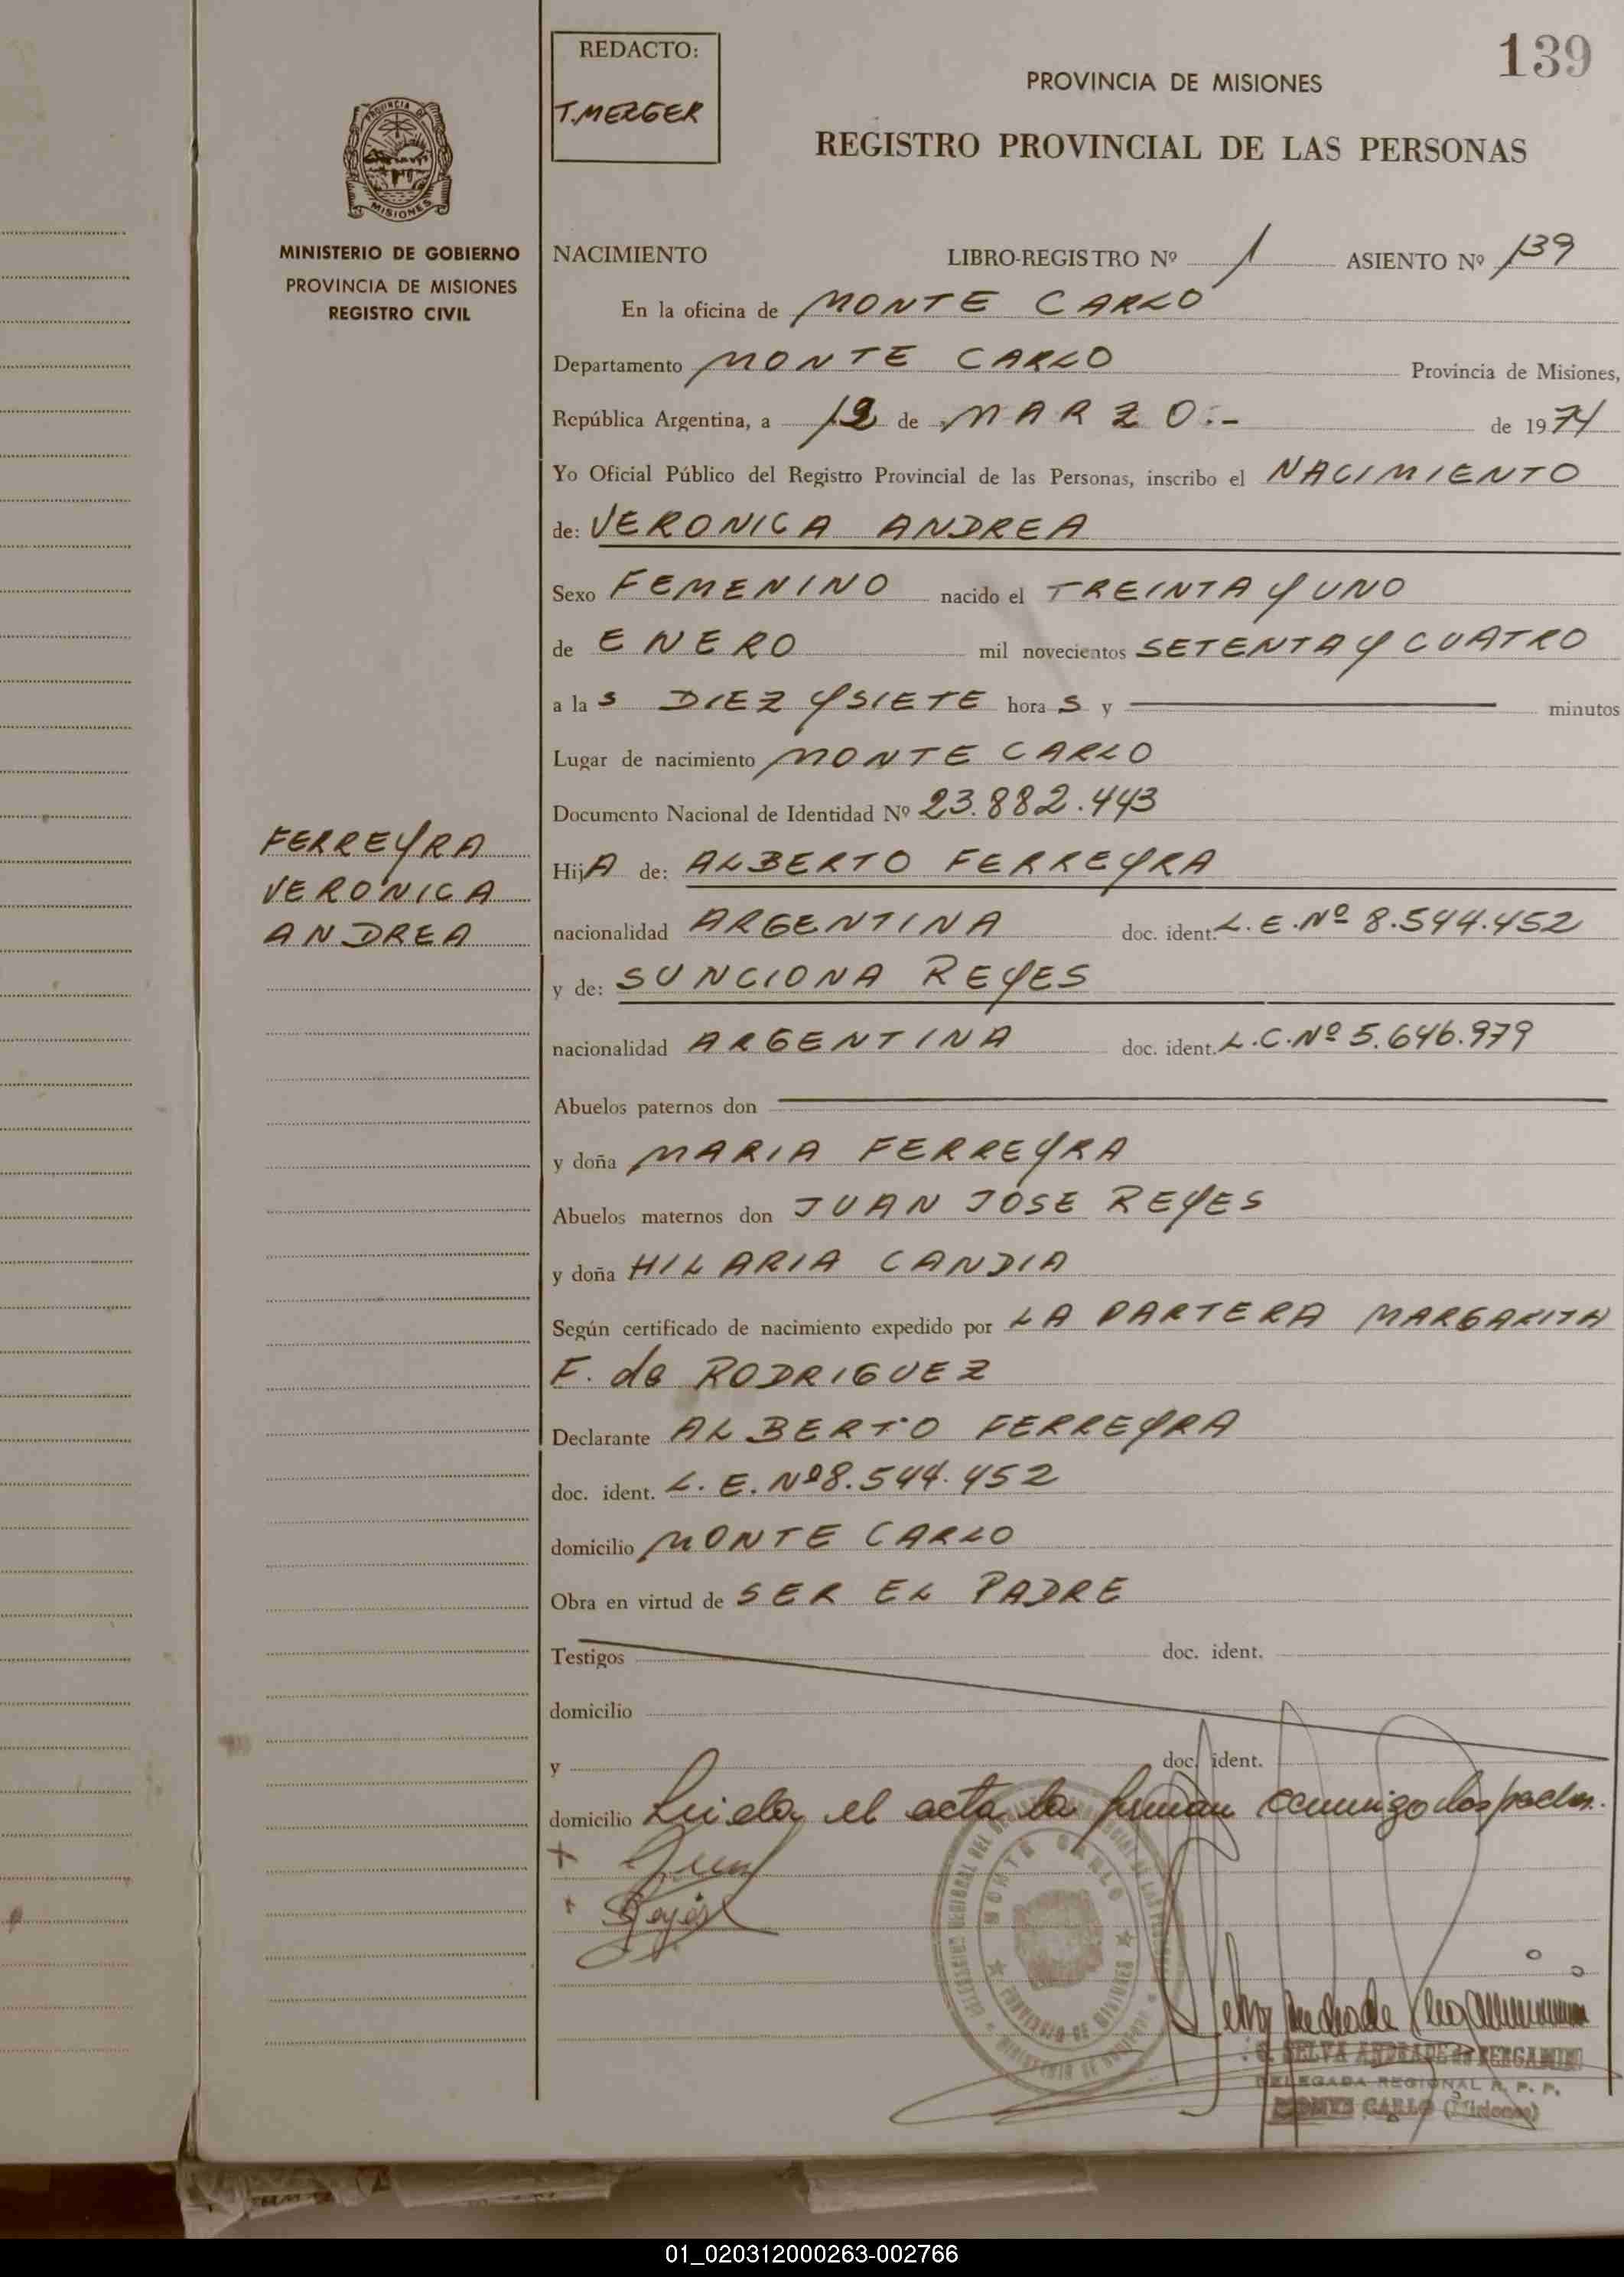 139
REDACTO:
T. MERGER
PROVINCIA DE MISIONES
REGISTRO PROVINCIAL DE LAS PERSONAS
PROVINCIA DE
MISIONES
MINISTERIO DE GOBIERNO
PROVINCIA DE MISIONES
REGISTRO CIVIL
NACIMIENTO LIBRO-REGISTRO Nº 1 ASIENTO Nº 139
En la oficina de MONTE CARLO
Departamento MONTE CARLO Provincia de Misiones,
República Argentina, a de MARZO.- de 1974
Yo Oficial Público del Registro Provincial de las Personas, inscribo el NACIMIENTO
de: VERONICA ANDREA
Sexo FEMENINO nacido el TREINTA Y UNO
de ENERO mil novecientos SETENTA Y CUATRO
a las DIEZ Y SIETE horas y minutos
Lugar de nacimiento MONTE CARLO
Documento Nacional de Identidad Nº 23.882.443
FERREYRA
VERONICA
ANDREA
HijA de: ALBERTO FERREYRA
nacionalidad ARGENTINA doc. ident. L.E.Nº 8.544.452
y de: SUNCIONA REYES
nacionalidad ARGENTINA doc. ident. L.C.Nº 5.646.979
Abuelos paternos don
y doña MARIA FERREYRA
Abuelos maternos don JUAN JOSE REYES
y doña HILARIA CANDIA
Según certificado de nacimiento expedido por LA PARTERA MARGARITA
F. de RODRIGUEZ
Declarante ALBERTO FERREYRA
doc. ident. L.E.Nº 8.544.452
domicilio MONTE CARLO
Obra en virtud de SER EL PADRE
Testigos doc. ident.
domicilio
y doc. ident.
domicilio Leida el acta la firman conmigo los padres.
MONTE CARLO
PROVINCIA DE MISIONES
S. SELVA ANDRADE de PERGAMINO
DELEGADA REGIONAL R. P. P.
MONTE CARLO (Misiones)
01_020312000263-002766